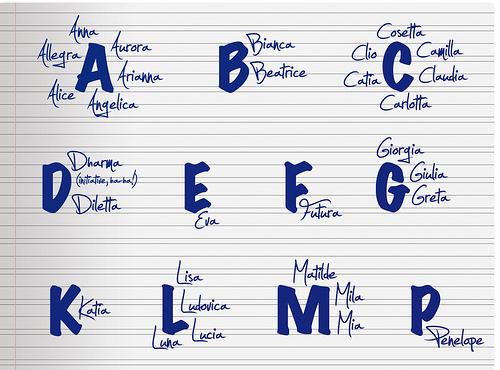 A
Anna
Allegra
Aurora
Arianna
Alice
Angelica
B
Bianca
Beatrice
C
Cosetta
Clio
Camilla
Catia
Claudia
Carlotta
D
Dharma
(initiative, ha-ha!)
Diletta
E
Eva
F
Futura
G
Giorgia
Giulia
Greta
K
Katia
L
Lisa
Ludovica
Lucia
Luna
M
Matilde
Mila
Mia
P
Penelope